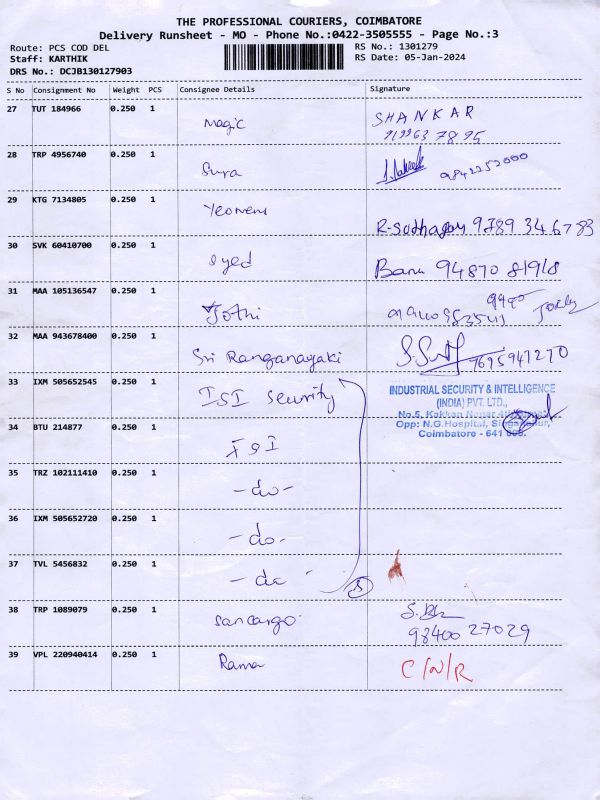 THE PROFESSIONAL COURIERS, COIMBATORE
Delivery Runsheet - MO - Phone No.:0422-3505555 - Page No.:3
Route: PCS COD DEL
RS No.: 1301279
Staff: KARTHIK
RS Date: 05-Jan-2024
DRS No.: DCJB130127903
S No Consignment No Weight PCS Consignee Details Signature
27 TUT 184966 0.250 1 Magic SHANKAR
28 TRP 4956740 0.250 1 Sura 9842252000
29 KTG 7134805 0.250 1 Yeomens
9789 346783
30 SVK 60410700 0.250 1 Syed Banu 94870 81918
31 MAA 105136547 0.250 1 Jothi
32 MAA 943678400 0.250 1 Sri Ranganayaki 7695947270
33 IXM 505652545 0.250 1 ISI Security
INDUSTRIAL SECURITY & INTELLIGENCE
(INDIA) PVT. LTD.,
No.5, Kakkan Nagar
Opp: N.G.Hospital,
Coimbatore - 641
34 BTU 214877 0.250 1 ISI
35 TRZ 102111410 0.250 1 -do-
36 IXM 505652720 0.250 1 -do-
37 TVL 5456832 0.250 1 -do-
5
38 TRP 1089079 0.250 1 Sancargo
98400 27029
39 VPL 220940414 0.250 1 Rama C/N/R